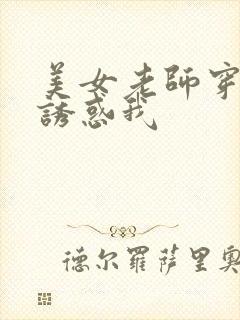 美女老師穿
誘惑我
德尔羅薩里奧